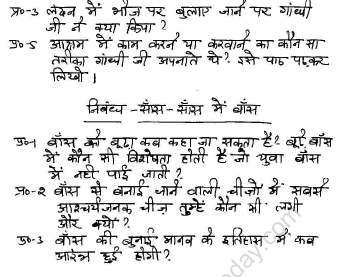 प्र०-3 लन्दन में भोज पर बुलाए जाने पर गांधी
जी ने क्या किया?
प्र०-5 आश्रम में काम करने या करवाने का कौन सा
तरीका गांधी जी अपनाते थे? इसे पाठ पढ़कर
लिखो।
निबंध - साँस-साँस में बाँस
प्र०-1 बाँस को बूढ़ा कब कहा जा सकता है? बूढ़े बाँस
में कौन सी विशेषता होती है जो युवा बाँस
में नहीं पाई जाती?
प्र०-2 बाँस से बनाई जाने वाली चीज़ों में सबसे
आश्चर्यजनक चीज़ तुम्हें कौन सी लगी
और क्यों?
प्र०-3 बाँस की बुनाई मानव के इतिहास में कब
आरंभ हुई होगी?